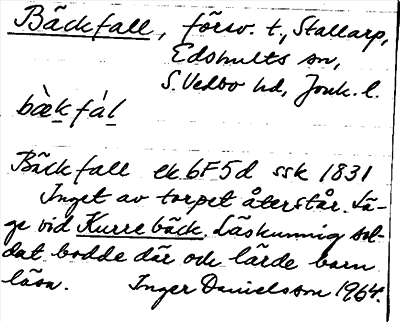 Bäckfall, försv. t., Stallarp,
Edshults sn,
S. Vedbo hd, Jönk. l.
bæ̀kfàl
Bäckfall ek 6F5d ssk 1831
Inget av torpet återstår. Lä-
ge vid Kurrebäck. Läskunnig sol-
dat bodde där och lärde barn
läsa. Inger Danielsson 1964.